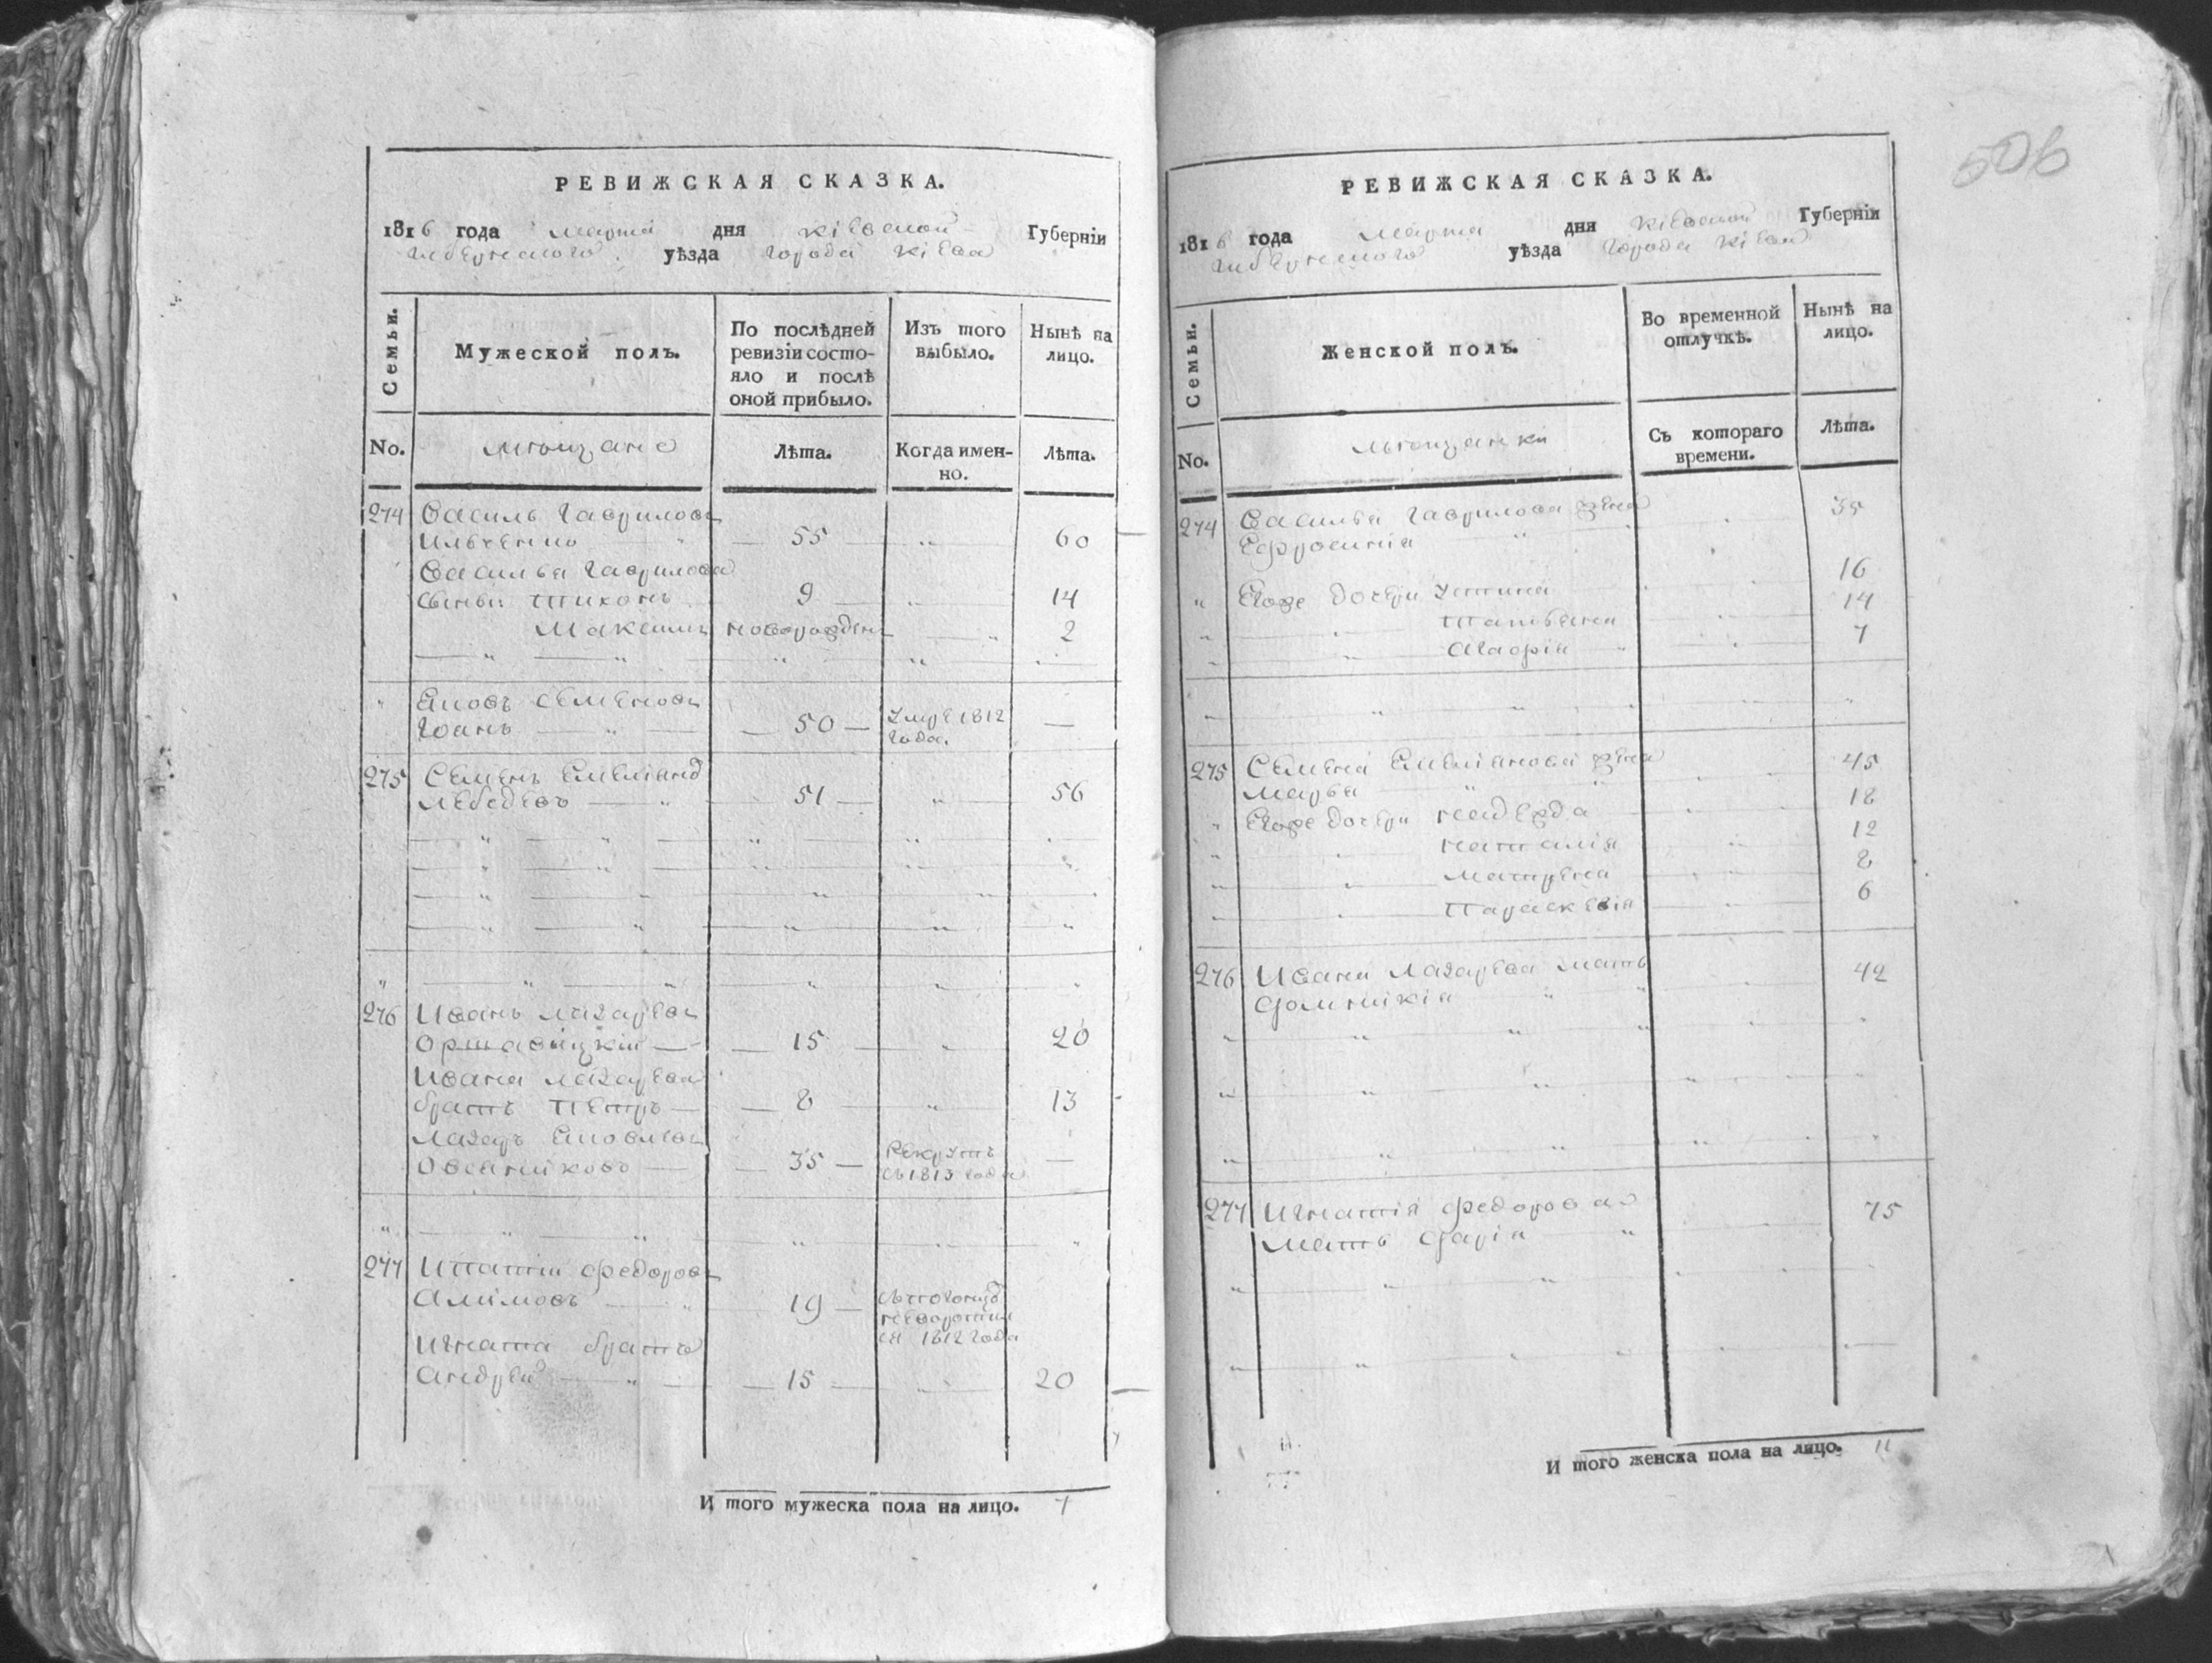 506
РЕВИЖСКАЯ СКАЗКА.
1816 года марта дня Кіевской Губерніи
уѣзда города Кіева
Семьи.
Мужеской полъ.
По послѣдней ревизіи состояло и послѣ оной прибыло.
Изъ того выбыло.
Нынѣ на лицо.
No.
мѣщане
Лѣта.
Когда именно.
Лѣта.
274 Василь Гавриловъ
Ильченко — 55 — 60
Василья Гаврилова
сыны: Тихонъ 9 — 14
Максимъ новорожденъ — 2
Яковъ Семеновъ
50 — Умре 1812 года. —
275 Семенъ Емеліанов
Лебедевъ — 51 — 56
276 Иванъ Лазаревъ
15 — 20
Ивана Лазарева
братъ Петръ — 8 — 13
Лазарь Яковлевъ
Овсяниковъ — 35 — Рекрутъ съ 1813 года —
277 Игнатій Федоровъ
Алимовъ — 19 —
1812 года
Игната братъ
Андрей — 15 — 20
И того мужеска пола на лицо. 7
РЕВИЖСКАЯ СКАЗКА.
1816 года марта дня Кіевской Губерніи
уѣзда города Кіева
Семьи.
Женской полъ.
Во временной отлучкѣ.
Нынѣ на лицо.
No.
мѣщанки
Съ котораго времени.
Лѣта.
274 Василья Гаврилова жена 35
Ефросинія
Егоже дочери Устина 16
Татьяна 14
7
275 Семена Емеліанова жена 45
Марья
Егоже дочери Надежда 18
Наталія 12
Матрена 8
Параскевія 6
276 Ивана Лазарева мать 42
Домникія
277 Игнатія Федорова 75
мать Дарія
И того женска пола на лицо. 11